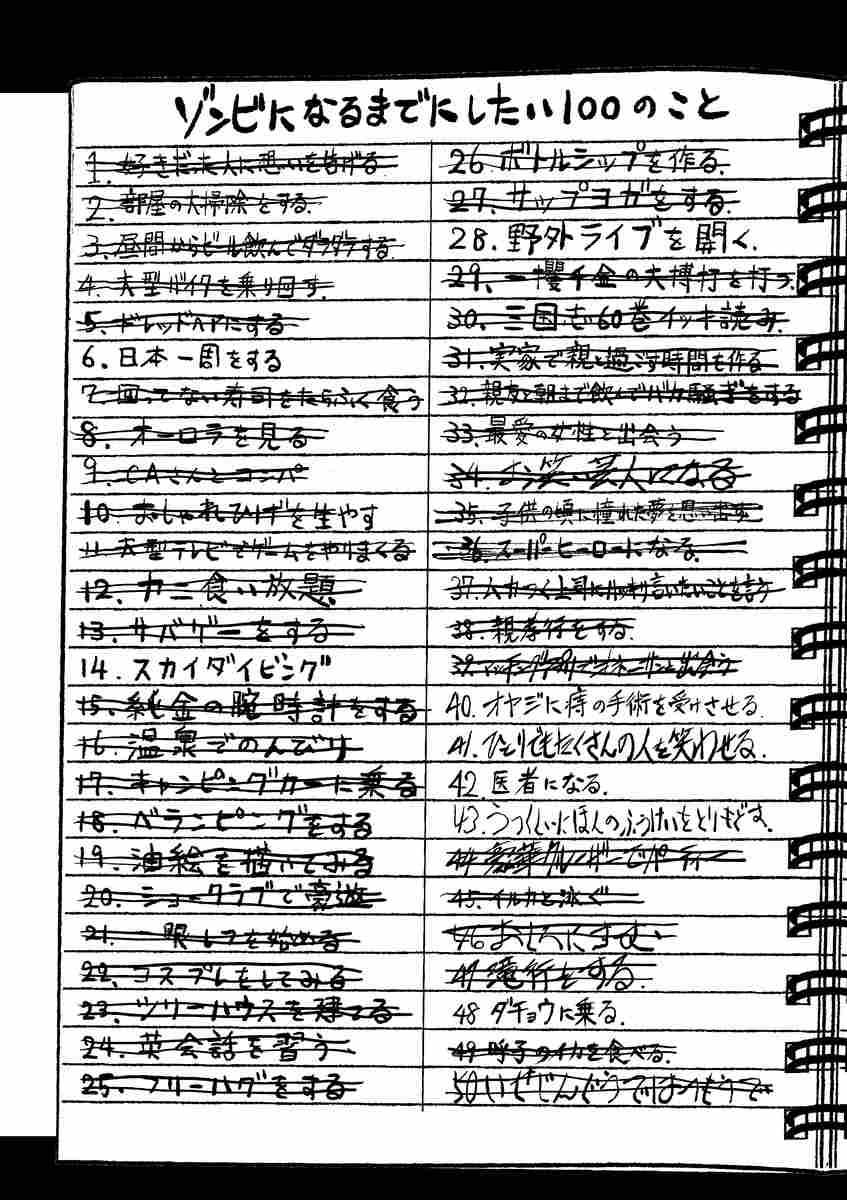 ゾンビになるまでにしたい100のこと
1. 好きだった人に思いを告げる
2. 部屋の大掃除をする.
3. 昼間からビール飲んでダラダラする
4. 大型バイクを乗り回す.
5. ドレッドヘアにする
6. 日本一周をする
7. 回ってない寿司をたらふく食う
8. オーロラを見る
9. CAさんとコンパ
10. おしゃれひげを生やす
11. 大型テレビでゲームをやりまくる
12. カニ食い放題.
13. サバゲーをする
14. スカイダイビング
15. 純金の腕時計をする
16. 温泉でのんびり
17. キャンピングカーに乗る
18. ベランピングをする
19. 油絵を描いてみる
20. ショークラブで豪遊
21. 一眼レフを始める
22. コスプレをしてみる
23. ツリーハウスを建てる
24. 英会話を習う.
25. フリーハグをする
26. ボトルシップを作る.
27. サップヨガをする.
28. 野外ライブを開く.
29. 一攫千金の大博打を打つ.
30. 三国志60巻イッキ読み.
31. 実家で親と過ごす時間も作る
32. 親友と朝まで飲んでバカ騒ぎをする
33. 最愛の女性と出会う
34. お笑い芸人になる
35. 子供の頃に憧れた夢を思い出す
36. スーパーヒーローになる.
37. ムカつく上司にハッキリ言いたいことを言う
38. 親孝行をする.
39. で出会う
40. オヤジに痔の手術を受けさせる.
41. ひとりでもたくさんの人を笑わせる.
42. 医者になる.
43. うつくしいにほんのふうけいをとりもどす.
44. 豪華クルーザーでパーティー
45. イルカと泳ぐ
46
47. 滝行をする.
48 ダチョウに乗る.
49 呼子のイカを食べる.
50